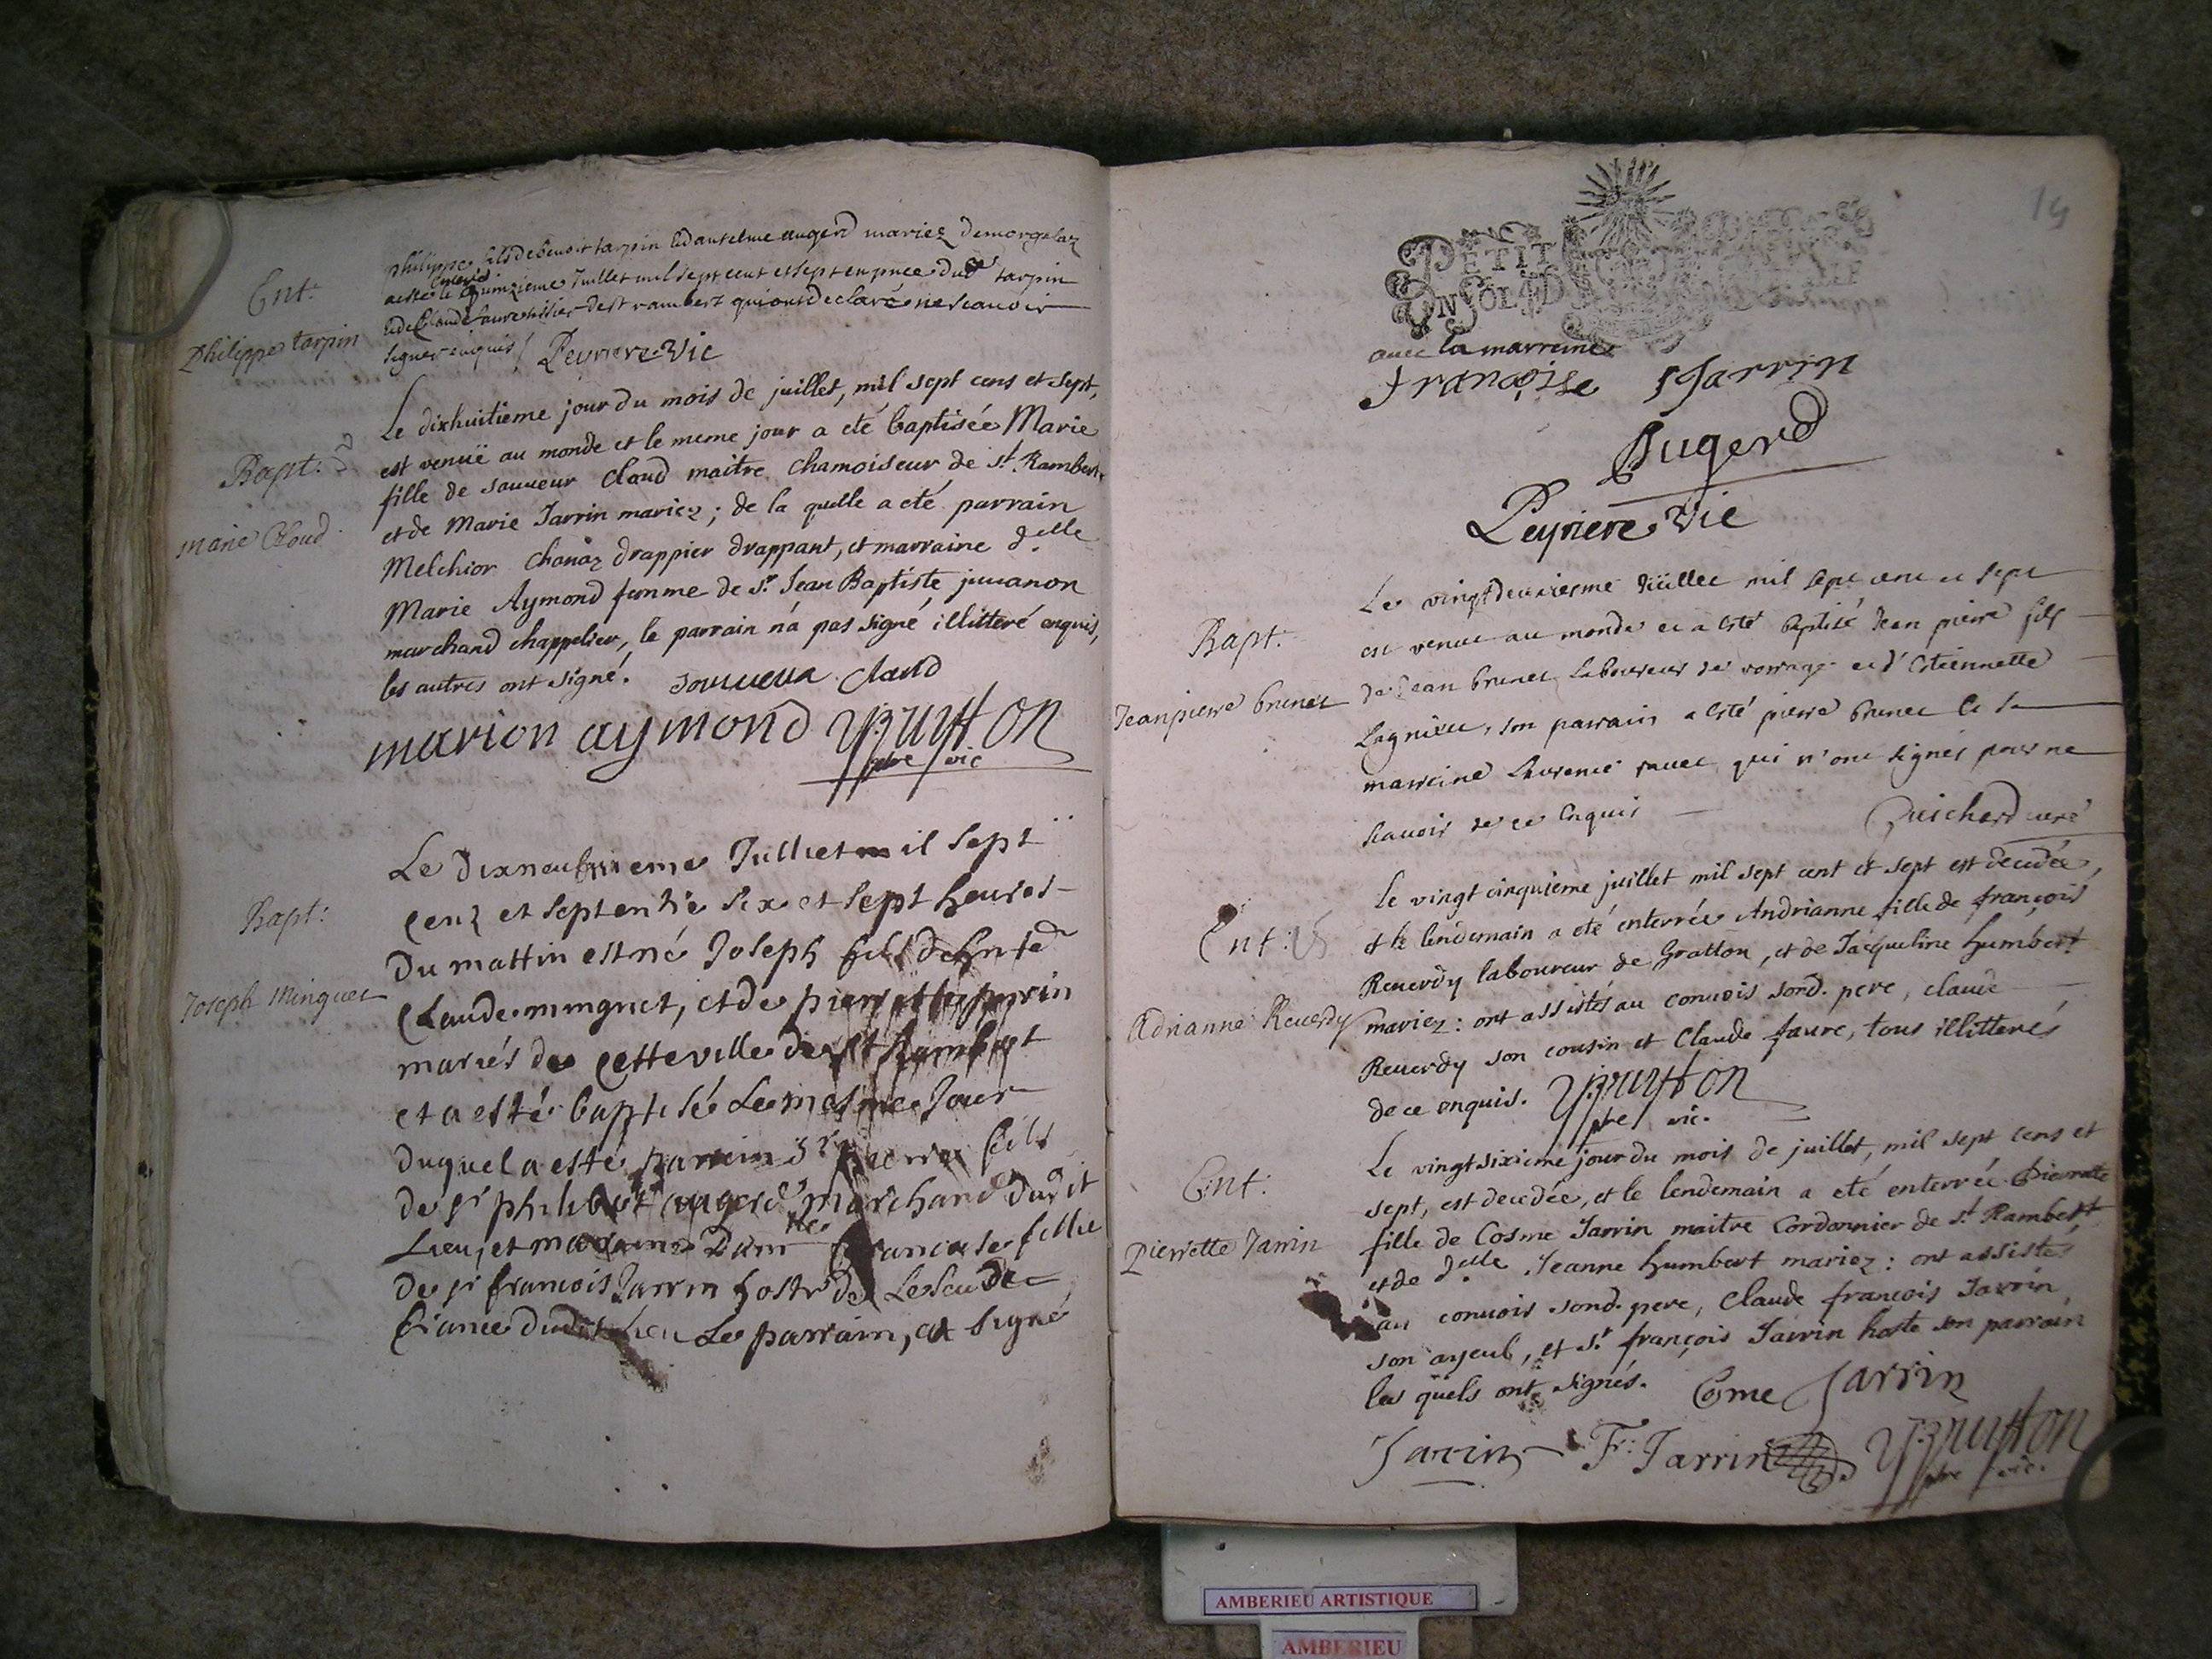 Ent:
Philippe tarpin
philippe fils de benoit tarpin et d'anselme augerd mariez de morgelaz
a esté enterré le quinzieme Juillet mil sept cent et sept en pnce dud tarpin
et de Claude faure tissier de st rambert qui ont declaré ne scavoir
signer enquis / Peyriere Vic
Bapt:
Marie Claud
Le dixhuitieme jour du mois de juillet, mil sept cens et sept,
est venuë au monde et le meme jour a eté baptisée Marie
fille de sauueur Claud maitre chamoiseur de st. Rambert
et de Marie Jarrin mariez; de la quelle a eté parrain
Melchior Chanaz drappier drappant, et marraine d.elle
Marie Aymond femme de Sr. Jean Baptiste juuanon
marchand chappelier, le parrain n'a pas signé illitteré enquis,
les autres ont signé. sauueur Claud
marion aymond Bruyton
pbre vic
Bapt:
Joseph Minguet
Le dixneufvieme Julliet mil sept
cens et sept entre six et sept heures
du mattin est né Joseph fils de
Claude minguet, et de pierrette perrin
mariés de cette ville de st Rambert
et a esté baptisé le mesme Jour
duquel a esté parrein Sr pierre fils
de Sr philibert augerd marchand dudit
Lieu, et marraine Damlle francoise fille
de sr francois Jarrin hoste de
france dudit Lieu Le parrain, at signé
14
PETIT
UN SOL
avec la marreine
francoise Jarrin
Augerd
Peyriere Vic
Bapt.
Jean pierre brunet
Le vingtdeuxiesme Juillet mil sept cent et sept
est venu au monde et a esté baptisé Jean pierre fils
de Jean brunet laboureur de vorrage et d'Estiennette
Lagnieu, son parrain a esté pierre brunet et sa
marreine Laurence qui n'ont signés pour ne
scauoir de ce Enquis
Guichard curé
Ent:
Adrianne Reuerdy
Le vingt cinquieme juillet mil sept cent et sept est decedée,
et le lendemain a eté enterrée Andrianne fille de françois
Reuerdy laboureur de Gratton, et de Jacqueline humbert
mariez: ont assistés au conuois sond. pere, claude
Reuerdy son cousin et Claude faure, tous illitterés
de ce enquis. Bruyton
pbre vic.
Ent:
Pierrette Jarrin
Le vingtsixieme jour du mois de juillet, mil sept cens et
sept, est decedée, et le lendemain a eté enterrée Pierrette
fille de Cosme Jarrin maitre Cordonnier de st. Rambert
et de d.elle Jeanne humbert mariez: ont assistés
au conuois sond. pere, Claude francois Jarrin
son ayeul, et Sr. françois Jarrin hoste son parrain
les quels ont signés. Come Jarrin
Jarrin Fr: Jarrin Bruyton
pbre vic.
AMBERIEU ARTISTIQUE
AMBERIEU